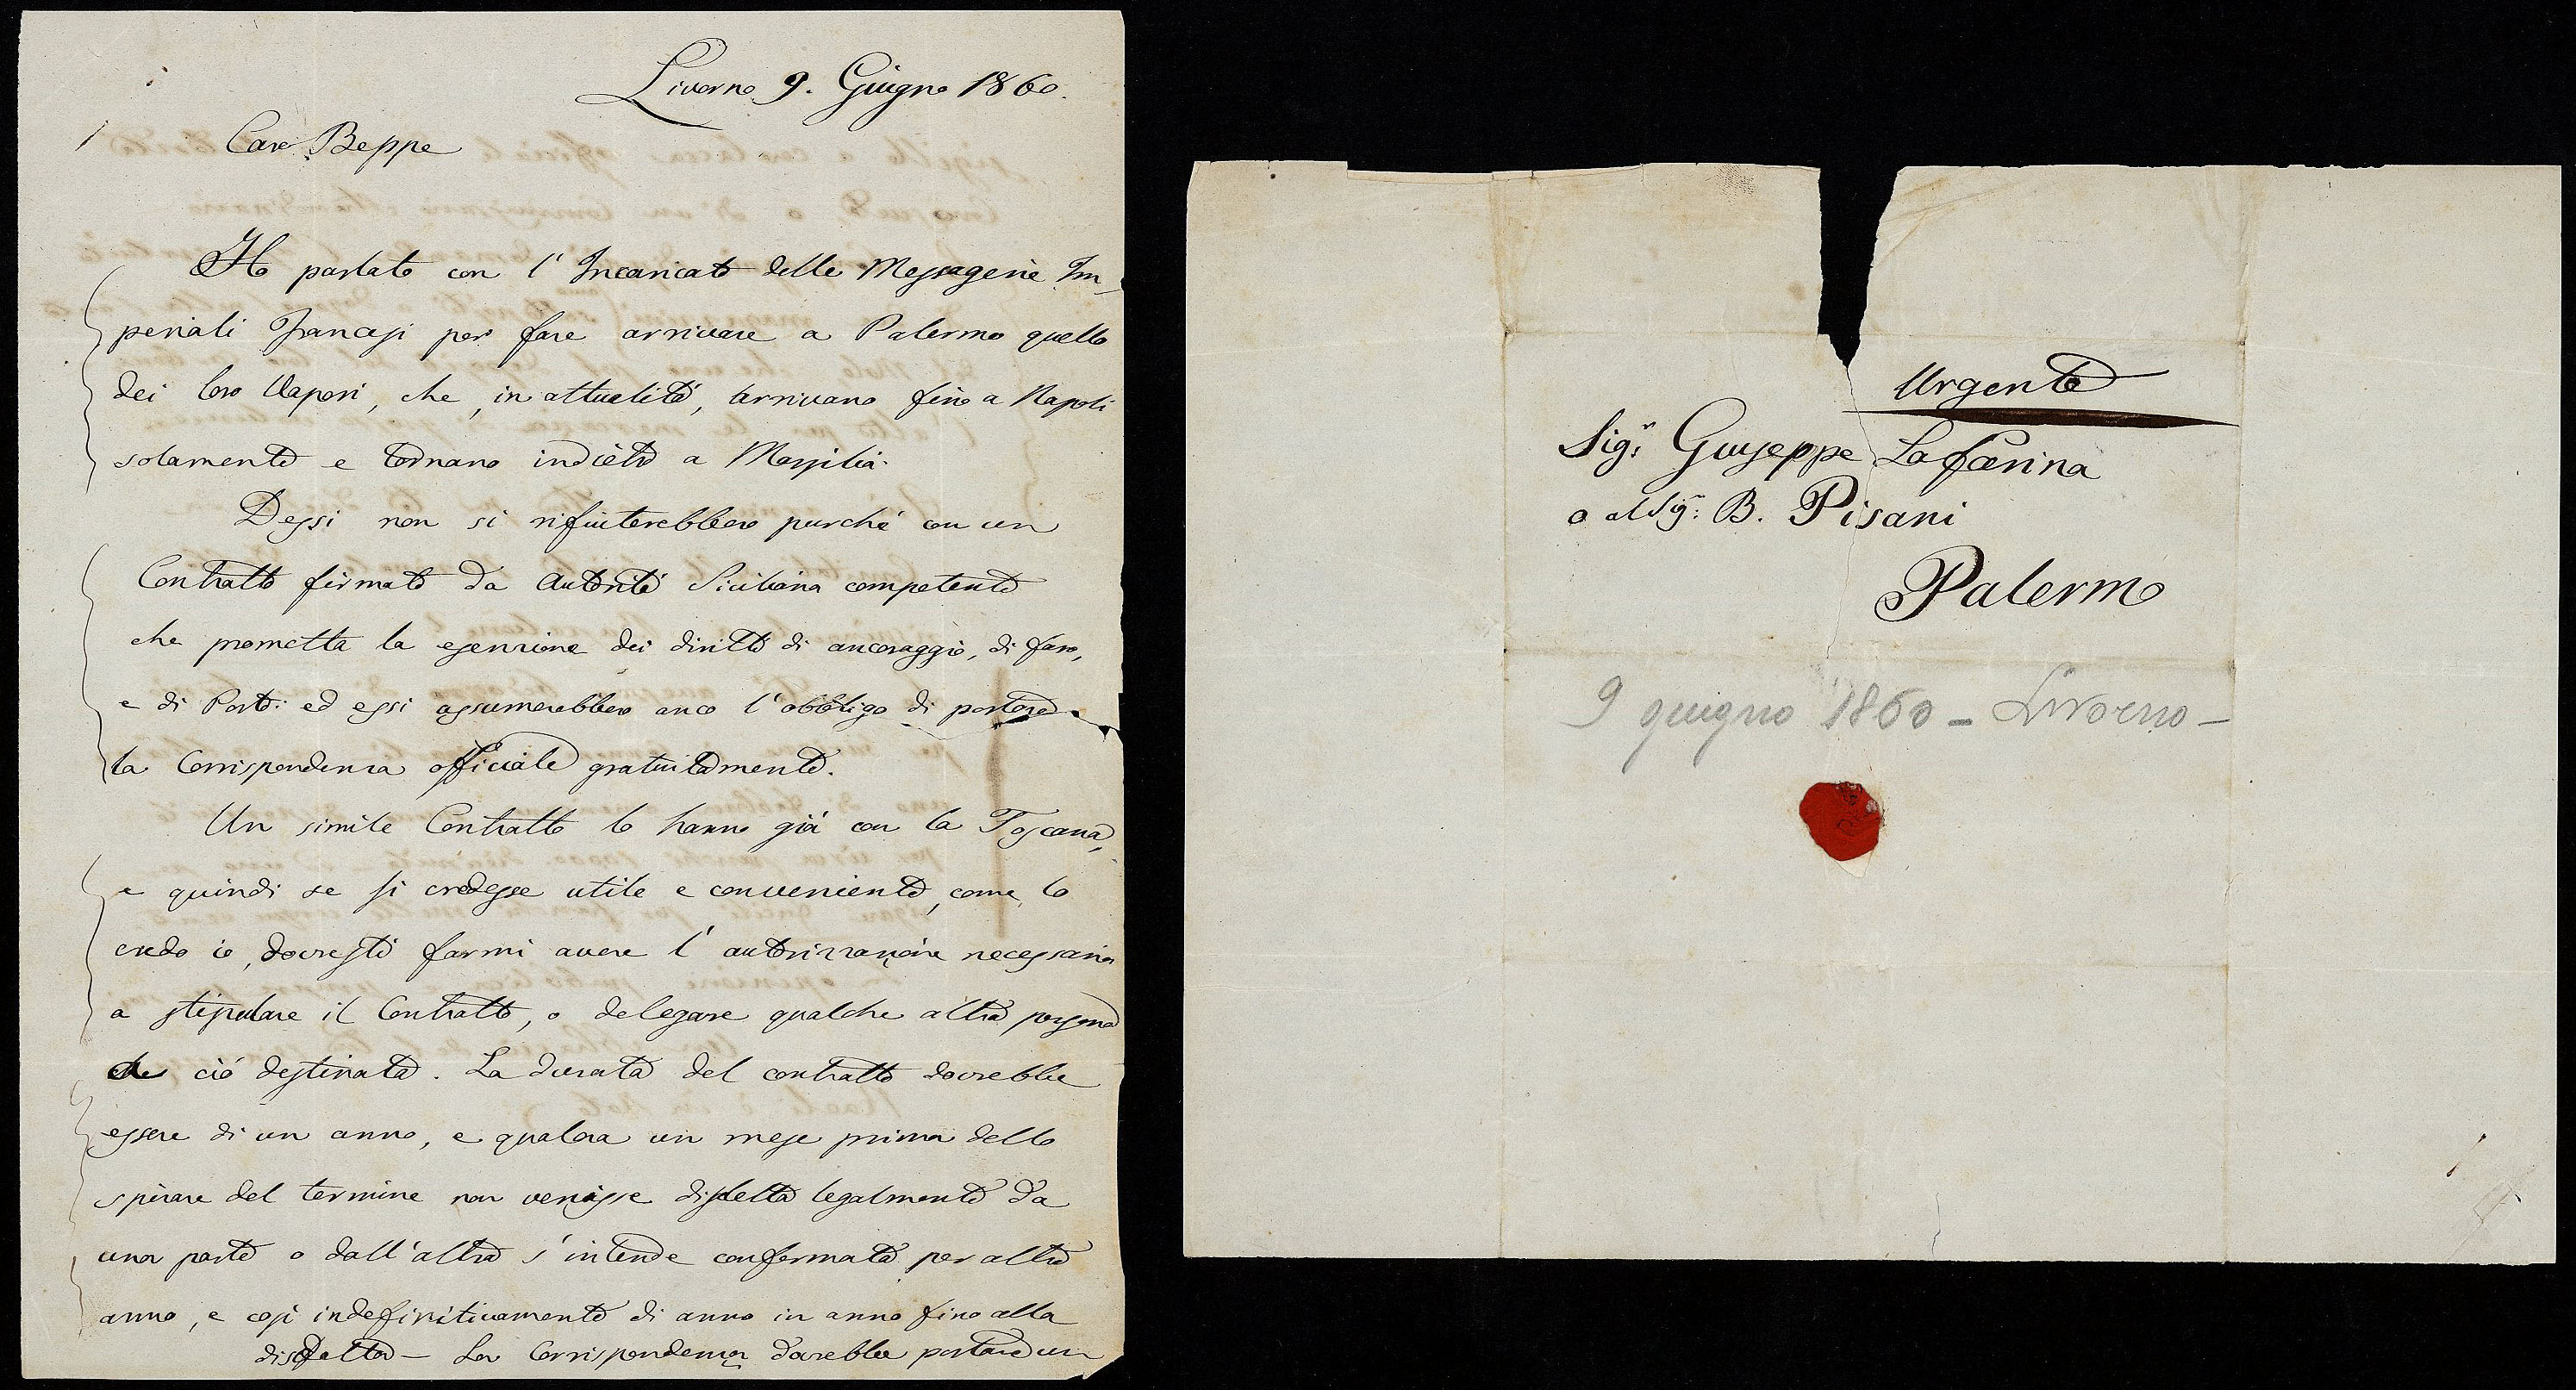 Livorno 9. Giugno 1860.
Caro Beppe
Ho parlato con l'Incaricato delle Messagerie Im-
periali Francesi per fare arrivare a Palermo quello
dei loro Vapori, che, in attualità, arrivano fino a Napoli
solamente e tornano indietro a Marsilia.
Dessi non si rifiuterebbero purchè con un
Contratto firmato da Autorità Siciliana competente
che prometta la esenzione dei diritti di ancoraggio, di faro,
e di Porto: ed essi assumerebbero anco l'obbligo di portare
la Corrispondenza officiale gratuitamente.
Un simile Contratto lo hanno già con la Toscana,
e quindi se si credesse utile e conveniente, come lo
credo io, dovresti farmi avere l'autorizzazione necessaria
a stipulare il Contratto, o delegare qualche altra persona
a ciò destinata. La durata del contratto dovrebbe
essere di un anno, e qualora un mese prima dello
spirare del termine non venisse disdetto legalmente da
una parte o dall'altra s'intende confermato per altro
anno, e così indefinitivamente di anno in anno fino alla
disdetta - La Corrispondenza dovrebbe portare un
Urgente
Sigr Giuseppe Lafarina
o al Sigr: B. Pisani
Palermo
9 giugno 1860 - Livorno -